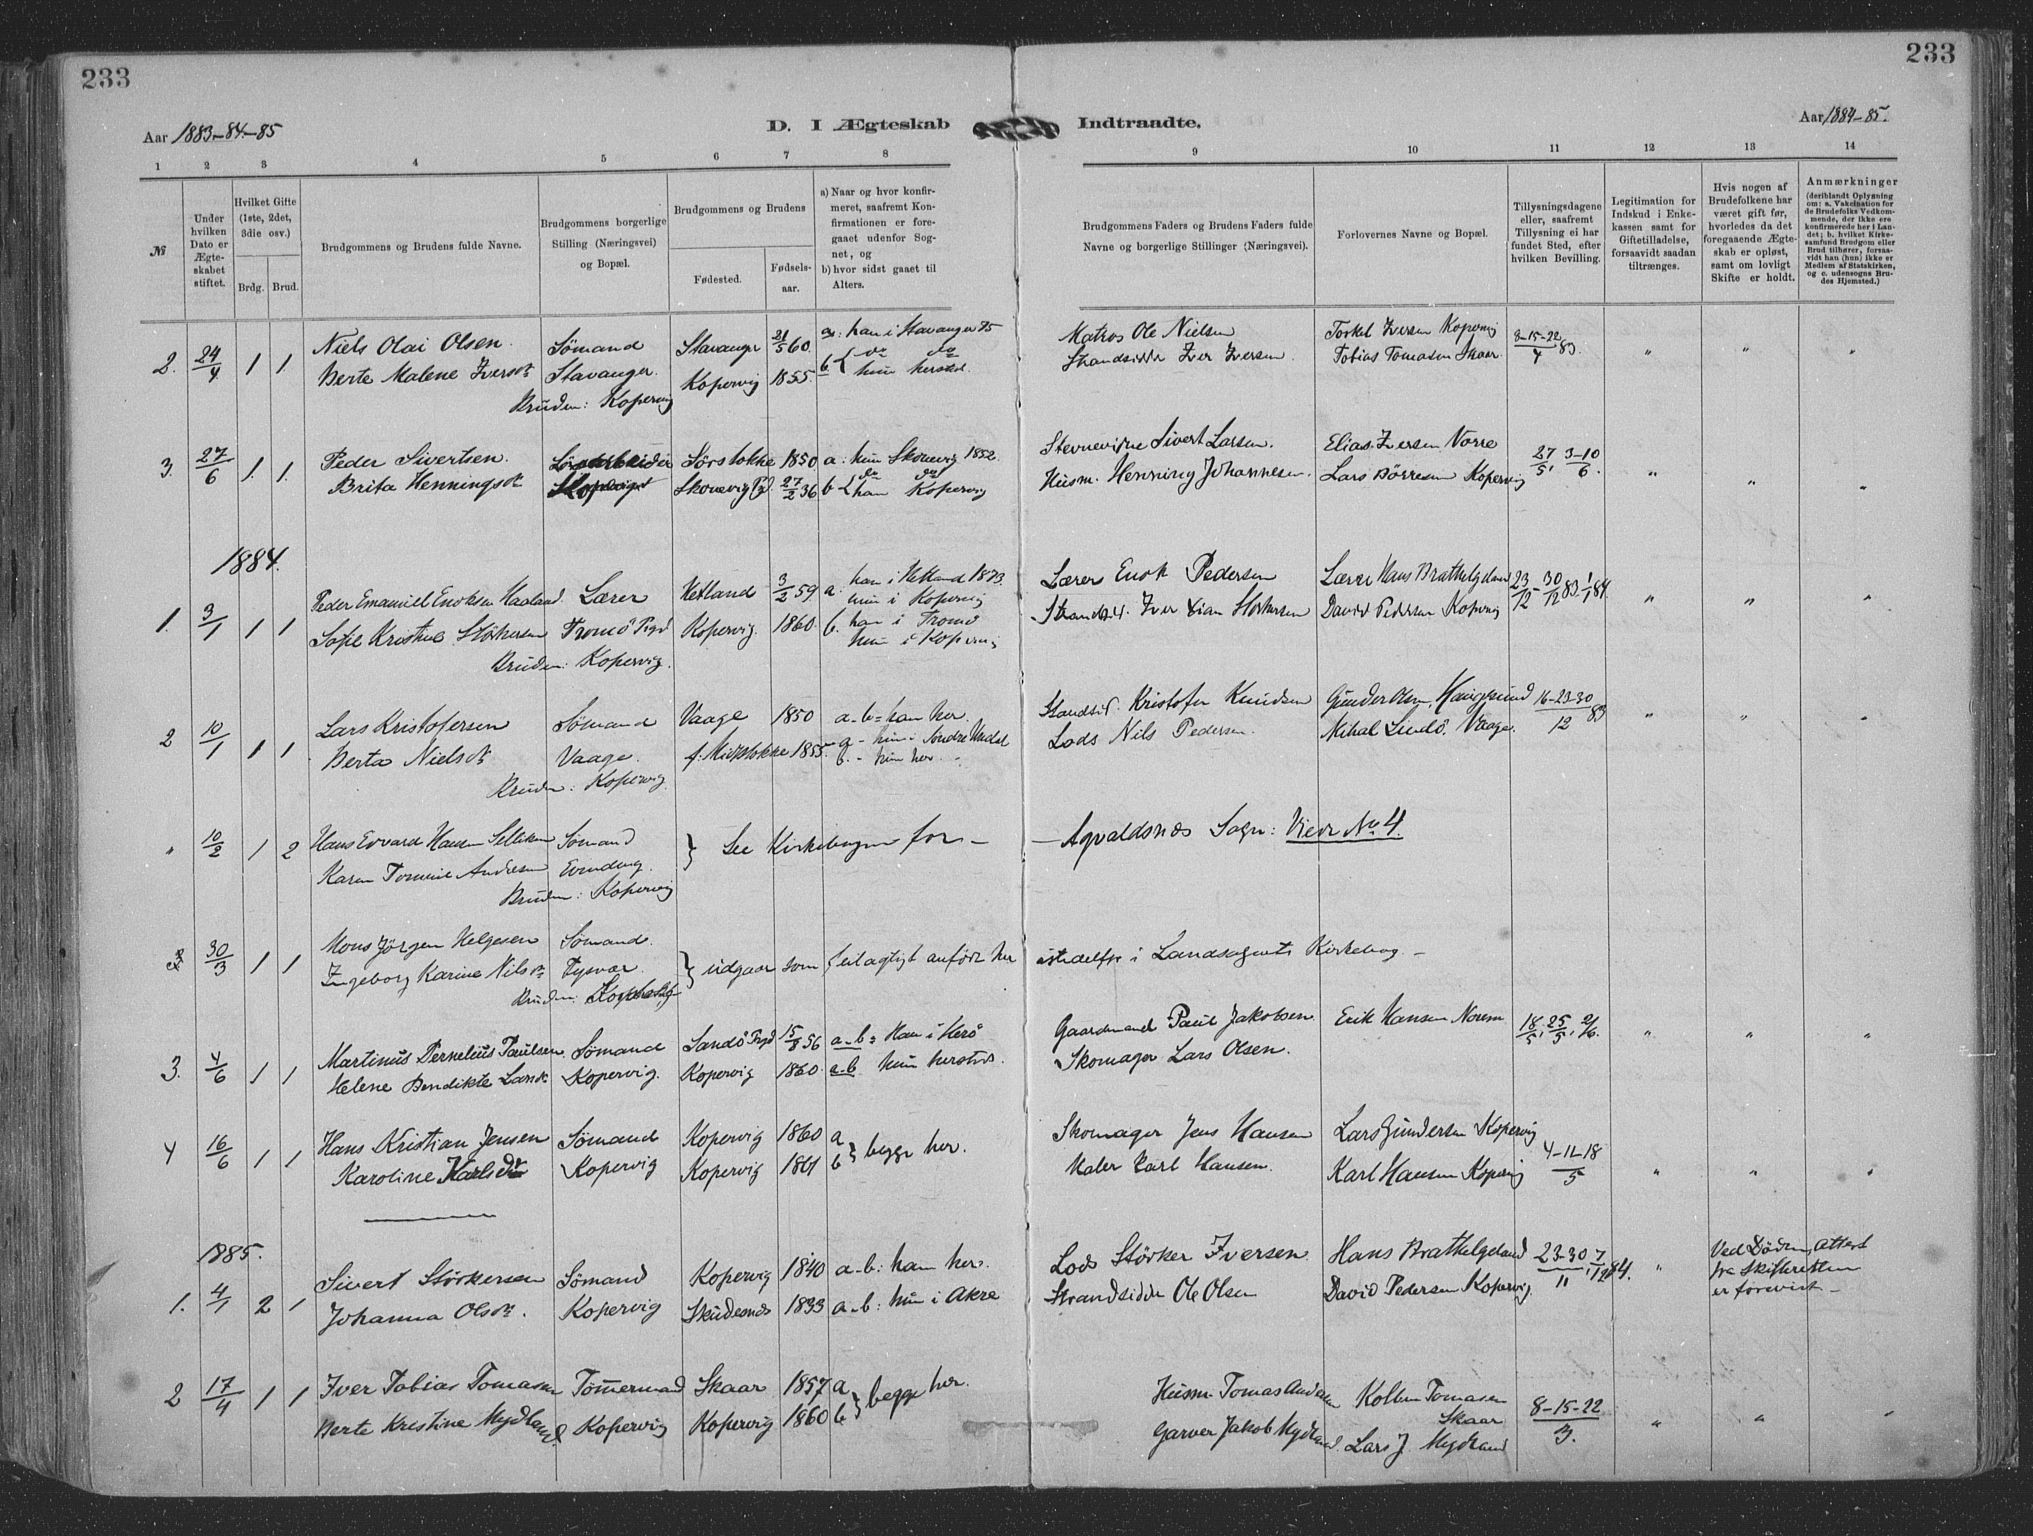 233
233
Aar 1883-84-85
D. I Ægteskab Indtraadte.
Aar 1884-85.
1 2 3 4 5 6 7 8 9 10 11 12 13 14
№
Under hvilken Dato er Ægteskabet stiftet.
Hvilket Gifte (1ste, 2det, 3die osv.)
Brdg. Brud.
Brudgommens og Brudens fulde Navne.
Brudgommens borgerlige Stilling (Næringsvei) og Bopæl.
Brudgommens og Brudens
Fødested.
Fødselsaar.
a) Naar og hvor konfirmeret, saafremt Konfirmationen er foregaaet udenfor Sognet, og
b) hvor sidst gaaet til Alters.
Brudgommens Faders og Brudens Faders fulde Navne og borgerlige Stillinger (Næringsvei).
Forlovernes Navne og Bopæl.
Tillysningsdagene eller, saafremt Tillysning ei har fundet Sted, efter hvilken Bevilling.
Legitimation for Indskud i Enkekassen samt for Giftetilladelse, forsaavidt saadan tiltrænges.
Hvis nogen af Brudefolkene har været gift før, hvorledes da det foregaaende Ægteskab er opløst, samt om lovligt Skifte er holdt.
Anmærkninger (deriblandt Oplysning om: a. Vakcination for de Brudefolks Vedkommende, der ikke ere konfirmerede her i Landet; b. hvilket Kirkesamfund Brudgom eller Brud tilhører, forsaavidt han (hun) ikke er Medlem af Statskirken, og c. udensogns Brudes Hjemsted.)
2. 24/4 1 1 Niels Olai Olsen Sømand Stavanger 21/5 60 a: han i Stavanger 75 Matros Ole Nielsen Torkel Iversen Kopervig 8-15-22/4 83. " " "
Berte Malene Iversdt. Stavanger. Kopervig 1855. b { do do hun hersted. Strandsidder Iver Iversen Tobias Tomasen Skaar
Bruden: Kopervig
3. 27/6 1. 1. Peder Sivertsen. Sørstokke 1850 a: hun Skonevig 1852 Stevnevidne Sivert Larsen. Elias Iversen Norre 27/5, 3-10/6. " " "
Brita Henningsdt. Kopervig Skonevig Pgd. 27/2 36 b { do do han Kopervig Husm. Henning Johannesen. Lars Børresen Kopervig
1884.
1. 3/1 1 1 Peder Emanuel Enoksen Haaland Lærer Hetland 3/2 59 a. han i Hetland 1873. hun i Kopervig Lærer Enok Pedersen Lærer Hans Brathelgeland 23/12 - 30/12 83, 1/1 84 " " "
Sofie Kristine Størkersen Tromø Pgd Kopervig. 1860 b. han i Tromø hun i Kopervig Strandsid. Iver Størkersen David Pedersen Kopervig
Bruden: Kopervig.
2 10/1 1 1 Lars Kristofersen Sømand Vaage 1850 a-b = han her. Standsid. Kristofer Knudsen Gunder Olsen, Haugesund 16-23-30/12 83 " " "
Berta Nielsdt. Vaage. f. Midtstokke 1855 a - hun i Søndre Undal b. - hun her. - Lods Nils Pedersen. Mikal Lindø Vaage.
Bruden: Kopervig
" 10/2 1 2 Hans Edvard Hansen Sømand } See Kirkebogen for - - Avaldsnæs Sogn: Viede No 4
Karen Tomine Andresen
Bruden: Kopervig
3 30/3 1 1 Mons Jørgen Helgesen Sømand. } udgaar som feilagtigt anført her istedetfor i Landsognets Kirkebog -
Ingeborg Karine Nilsdt. Tysvær.
Bruden: Kopervig
3. 4/6 1 1 Martinus Perneliüs Paulsen Sømand Sandø Pgd 15/8 56 a-b = Han i Herø Gaardmand Paul Jakobsen Erik Hansen Norem 18/5, 25/5, 2/6. " " "
Helene Bendikte Larsdt. Kopervig. Kopervig 1860. a-b hun hersteds. Skomager Lars Olsen.
4 16/6 1 1 Hans Kristian Jensen Sømand Kopervig 1860 a } begge her. Skomager Jens Hansen Lars Gundersen Kopervig 4-11-18/5 " " "
Karoline Karlsdtr Kopervig Kopervig 1861 b Maler Karl Hansen. Karl Hansen Kopervig
1885.
1. 4/1 2 1 Sivert Størkersen Sømand Kopervig 1840 a-b: han her. Lods Størker Iversen Hans Brathelgeland 23-30/11, 7/12 84. " Ved Døden, Attest fra Skifteretten er forevist -
Johanna Olsdt. Kopervig Skudesnes 1833 a-b: hun i Akre Strandsidde Ole Olsen David Pedersen Kopervig.
2 17/4 1 1 Iver Tobias Tomasen Tømermand Skaar 1857 a } begge her. Husm Tomas Kolben Tomasen Skaar 8-15-22/3. " " "
Berte Kristine Mydland. Kopervig Kopervig 1860 b Garver Jakob Mydland. Lars J. Mydland